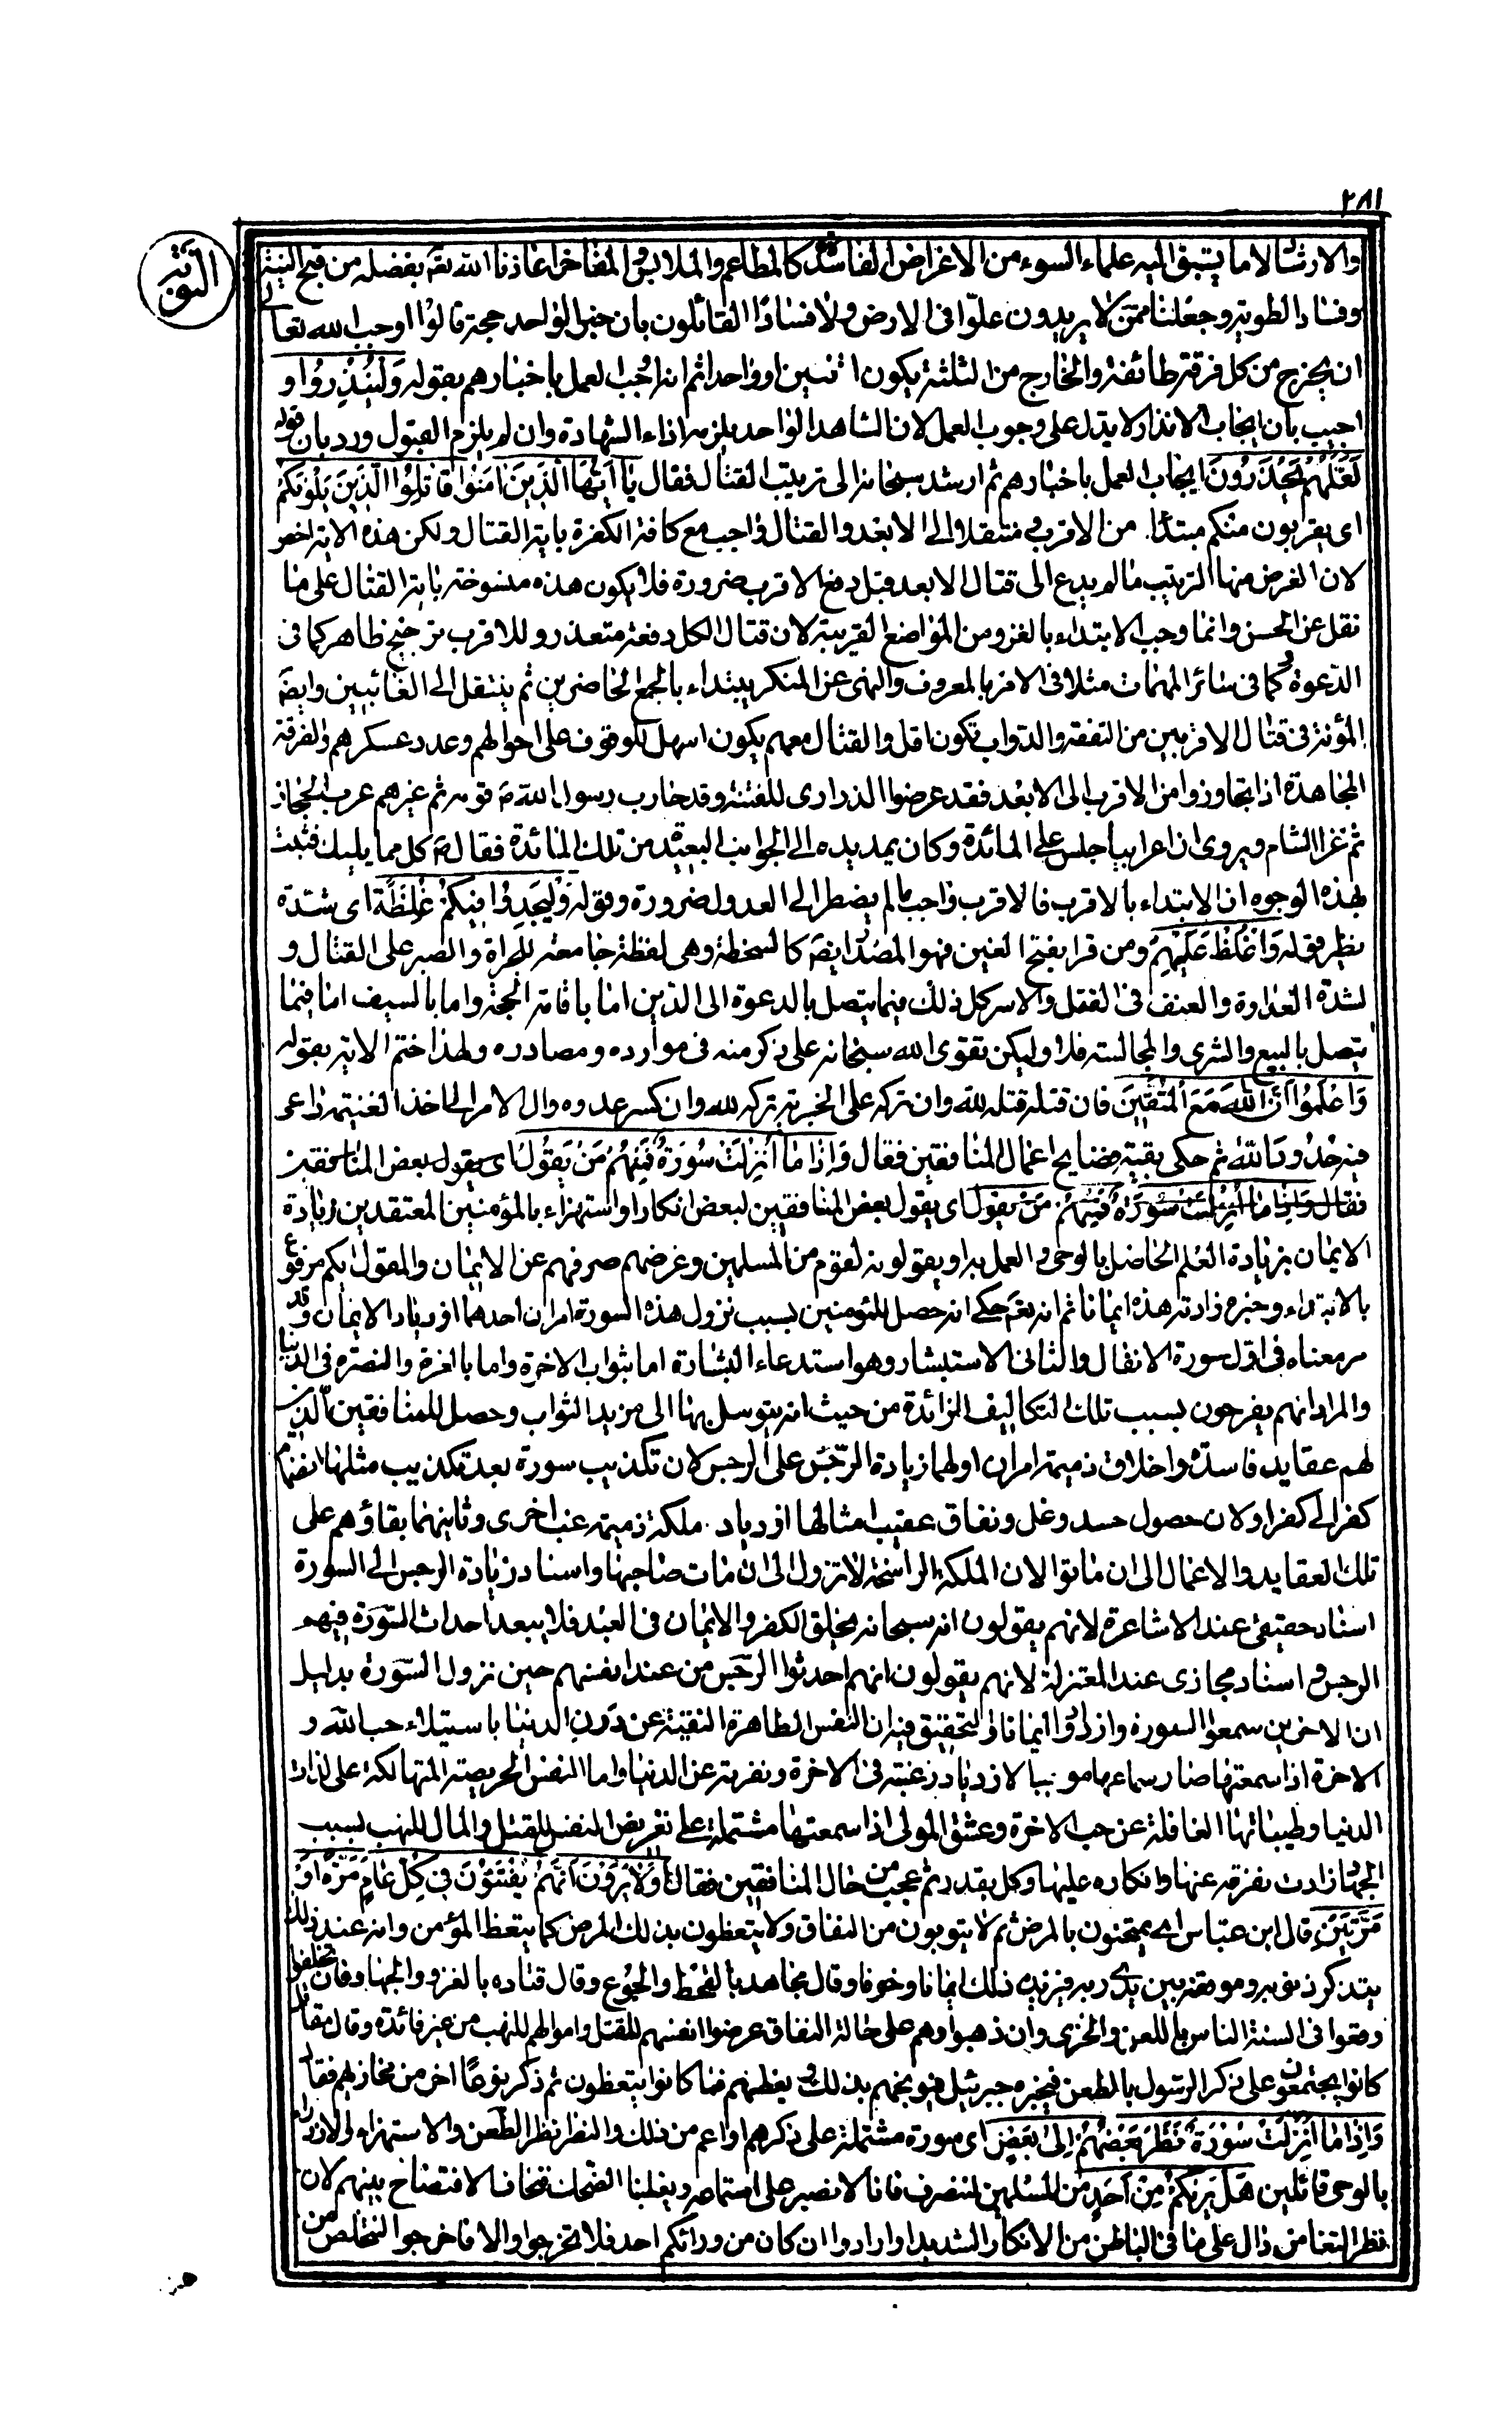 ٢٨١
التوبة
والارشاد لا ما يتسبق اليه علماء السوء من الاغراض الفاسدة كالمطاعم والملابس والمفاخر اعاذنا الله تعم بفضله من قبح النية
وفساد الطوية وجعلنا ممن لا يريدون علوا فى الارض ولا فسادا القائلون بان خبر الواحد حجة قالوا اوجب الله تعالى
ان يخرج من كل فرقة طائفة والخارج من الثلثة يكون اثنين او واحدا ثم انه اوجب العمل باخبارهم بقوله وَلِيُنْذِرُوا و
اجيب بان ايجاب الانذار لا يدل على وجوب العمل لان الشاهد الواحد يلزمه اداء الشهادة وان لم يلزم القبول ورد بان قوله
لَعَلَّهُمْ يَحْذَرُونَ ايجاب العمل باخبارهم ثم ارشد سبحانه الى ترتيب القتال فقال يا اَيُّهَا الَّذِينَ آمَنُوا قَاتِلُوا الَّذِينَ يَلُونَكُمْ
اى يقربون منكم مبتدئا من الاقرب منتقلا الى الابعد والقتال واجب مع كافة الكفرة باية القتال ولكن هذه الاية اخص
لان الغرض منها الترتيب ما لم يدع الى قتال الابعد قبل دفع الاقرب ضرورة فلا يكون هذه منسوخة باية القتال على ما
نقل عن الحسن وانما وجب الابتداء بالغزو من المواضع القريبة لان قتال الكل دفعة متعذر وللاقرب ترجيح ظاهر كما فى
الدعوة وكما فى سائر المهمات مثلا فى الامر بالمعروف والنهى عن المنكر يبتداء بالجمع الحاضرين ثم ينتقل الى الغائبين وايضَ
المؤنة فى قتال الاقربين من النفقة والدواب تكون اقل والقتال معهم يكون اسهل للوقوف على احوالهم وعدد عسكرهم والفرقة
المجاهدة اذا تجاوزوا من الاقرب الى الابعد فقد عرضوا الذرارى للفتنة وقد حارب رسول الله صَ قومه ثم غيرهم عرب الحجاز
ثم غزا الشام ويروى ان اعرابيا جلس على المائدة وكان يمد يده الى الجوانب البعيدة من تلك المائدة فقال صَ كل مما يليك فثبت
بهذه الوجوه ان الابتداء بالاقرب فالاقرب واجب ما لم يضطر الى العدول ضرورة وقوله وَلْيَجِدُوا فِيكُمْ غِلْظَةً اى شدة
نظير قوله وَاغْلُظْ عَلَيْهِمْ ومن قرا بفتح الغين فهو المصدر ايضَ كالسخطة وهى لفظة جامعة للجراة والصبر على القتال و
لشدة العداوة والعنف فى القتل والاسر كل ذلك فيما يتصل بالدعوة الى الدين اما باقامة الحجة واما بالسيف اما فيما
يتصل بالبيع والشرى والمجالسة فلا وليكن تقوى الله سبحانه على ذكر منه فى موارده ومصادره ولهذا ختم الاية بقوله
وَاعْلَمُوا اَنَّ اللّٰهَ مَعَ الْمُتَّقِينَ فان قتله قتله لله وان تركه على الجزية تركه لله وان كسر عدوه وال الامر الى اخذ الغنيمة راعى
فيه حدود الله ثم حكى بقية فضايح اعمال المنافقين فقال وَاِذَا مَا اُنْزِلَتْ سُورَةٌ فَمِنْهُمْ مَنْ يَقُولُ اى يقول بعض المنافقين
فقال واذا ما انزلت سورة فمنهم من يقول اى يقول بعض المنافقين لبعض انكارا واستهزاء بالمؤمنين المعتقدين زيادة
الايمان بزيادة العلم الحاصل بالوحى والعمل به او يقولونه لقوم من المسلمين وغرضهم صرفهم عن الايمان والمقول ايكم مرفوع
بالابتداء وخبره زادته هذه ايمانا ثم انه تعم حكى انه حصل للمؤمنين بسبب نزول هذه السورة امران احدهما ازدياد الايمان وقد
مر معناه فى اول سورة الانفال والثانى الاستبشار وهو استدعاء البشارة اما بثواب الاخرة واما بالعزة والنصرة فى الدنيا
والمراد انهم يفرحون بسبب تلك التكاليف الزائدة من حيث انه يتوسل بها الى مزيد الثواب وحصل للمنافقين الذين
لهم عقايد فاسدة واخلاق ذميمة امران اولهما زيادة الرجس على الرجس لان تكذيب سورة بعد تكذيب مثلها انضمام
كفر الى كفر او لان حصول حسد وغل ونفاق عقيب امثالها ازدياد ملكة ذميمة غب اخرى وثانيهما بقاؤهم على
تلك العقايد والاعمال الى ان ماتوا لان الملكة الراسخة لا تزول الى ان مات صاحبها واسناد زيادة الرجس الى السورة
اسناد حقيقى عند الاشاعرة لانهم يقولون انه سبحانه يخلق الكفر والايمان فى العبد فلا يبعد احداث السورة فيهم
الرجس و اسناد مجازى عند المعتزلة لانهم يقولون انهم احدثوا الرجس من عند انفسهم حين نزول السورة بدليل
ان الاخرين سمعوا السورة وازدادوا ايمانا والتحقيق فيه ان النفس الطاهرة النقية عن درن الدنيا باستيلاء حب الله و
الاخرة اذا سمعتها صار سماعها موجبا لازدياد رغبته فى الاخرة ونفرته عن الدنيا واما النفس الحريصة المتهالكة على لذات
الدنيا وطيباتها الغافلة عن حب الاخرة وعشق المولى اذا سمعتها مشتملة على تعريض النفس للقتل والمال للنهب بسبب
الجهاد زادت نفرته عنها وانكاره عليها وكل بقدر ثم عجب من حال المنافقين فقال اَوَلَا يَرَوْنَ اَنَّهُمْ يُفْتَنُونَ فِي كُلِّ عَامٍ مَرَّةً اَوْ
مَرَّتَيْنِ قال ابن عباس اى يمتحنون بالمرض ثم لا يتوبون من النفاق ولا يتعظون بذلك المرض كما يتعظ المؤمن وانه عند ذلك
يتذكر ذنوبه وموقفه بين يدى ربه فيزيده ذلك ايمانا وخوفا وقال مجاهد بالقحط والجوع وقال قتاده بالغزو والجهاد فان تخلفوا
وقعوا فى السنة الناس باللعن والخزى وان ذهبوا وهم على حالة النفاق عرضوا انفسهم للقتل واموالهم للنهب من غير فائدة وقال مقاتل
كانوا يجتمعون على ذكر الرسول بالطعن فيخبره جبرئيل فيوبخهم بذلك ويعظهم فما كانوا يتعظون ثم ذكر نوعا اخر من مخازيهم فقال
وَاِذَا مَا اُنْزِلَتْ سُورَةٌ نَظَرَ بَعْضُهُمْ اِلىٰ بَعْضٍ اى سورة مشتملة على ذكرهم او اعم من ذلك والنظر نظر الطعن والاستهزاء والازراء
بالوحى قائلين هَلْ يَرٰيكُمْ مِنْ اَحَدٍ من المسلمين لننصرف فانا لا نصبر على استماعه ويغلبنا الضحك فنخاف الافتضاح بينهم لان
نظر التغامز دال على ما فى الباطن من الانكار الشديد او ارادوا ان كان من ورائكم احد فلا تخرجوا والا فاخرجوا لنتخلص من